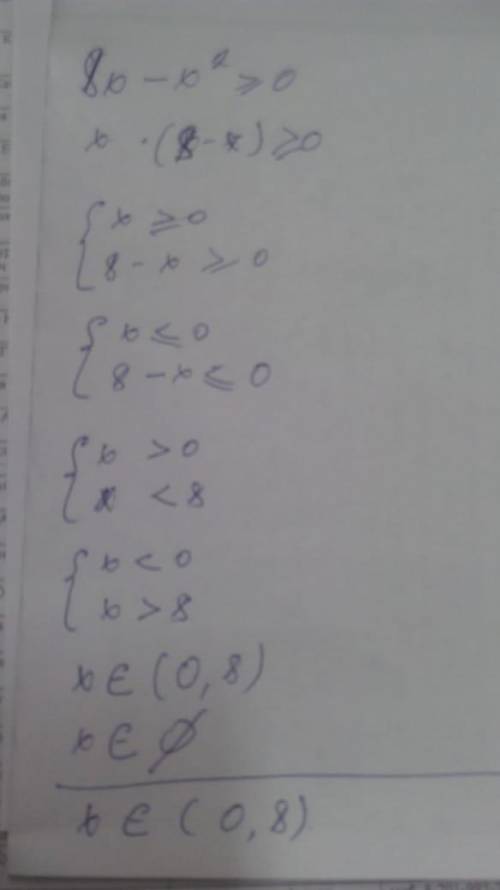 8x - x² ≥ 0
x · (8 - x) ≥ 0
{ x ≥ 0
8 - x ≥ 0
{ x ≤ 0
8 - x ≤ 0
{ x > 0
x < 8
{ x < 0
x > 8
x ∈ (0, 8)
x ∈ ∅
x ∈ (0, 8)